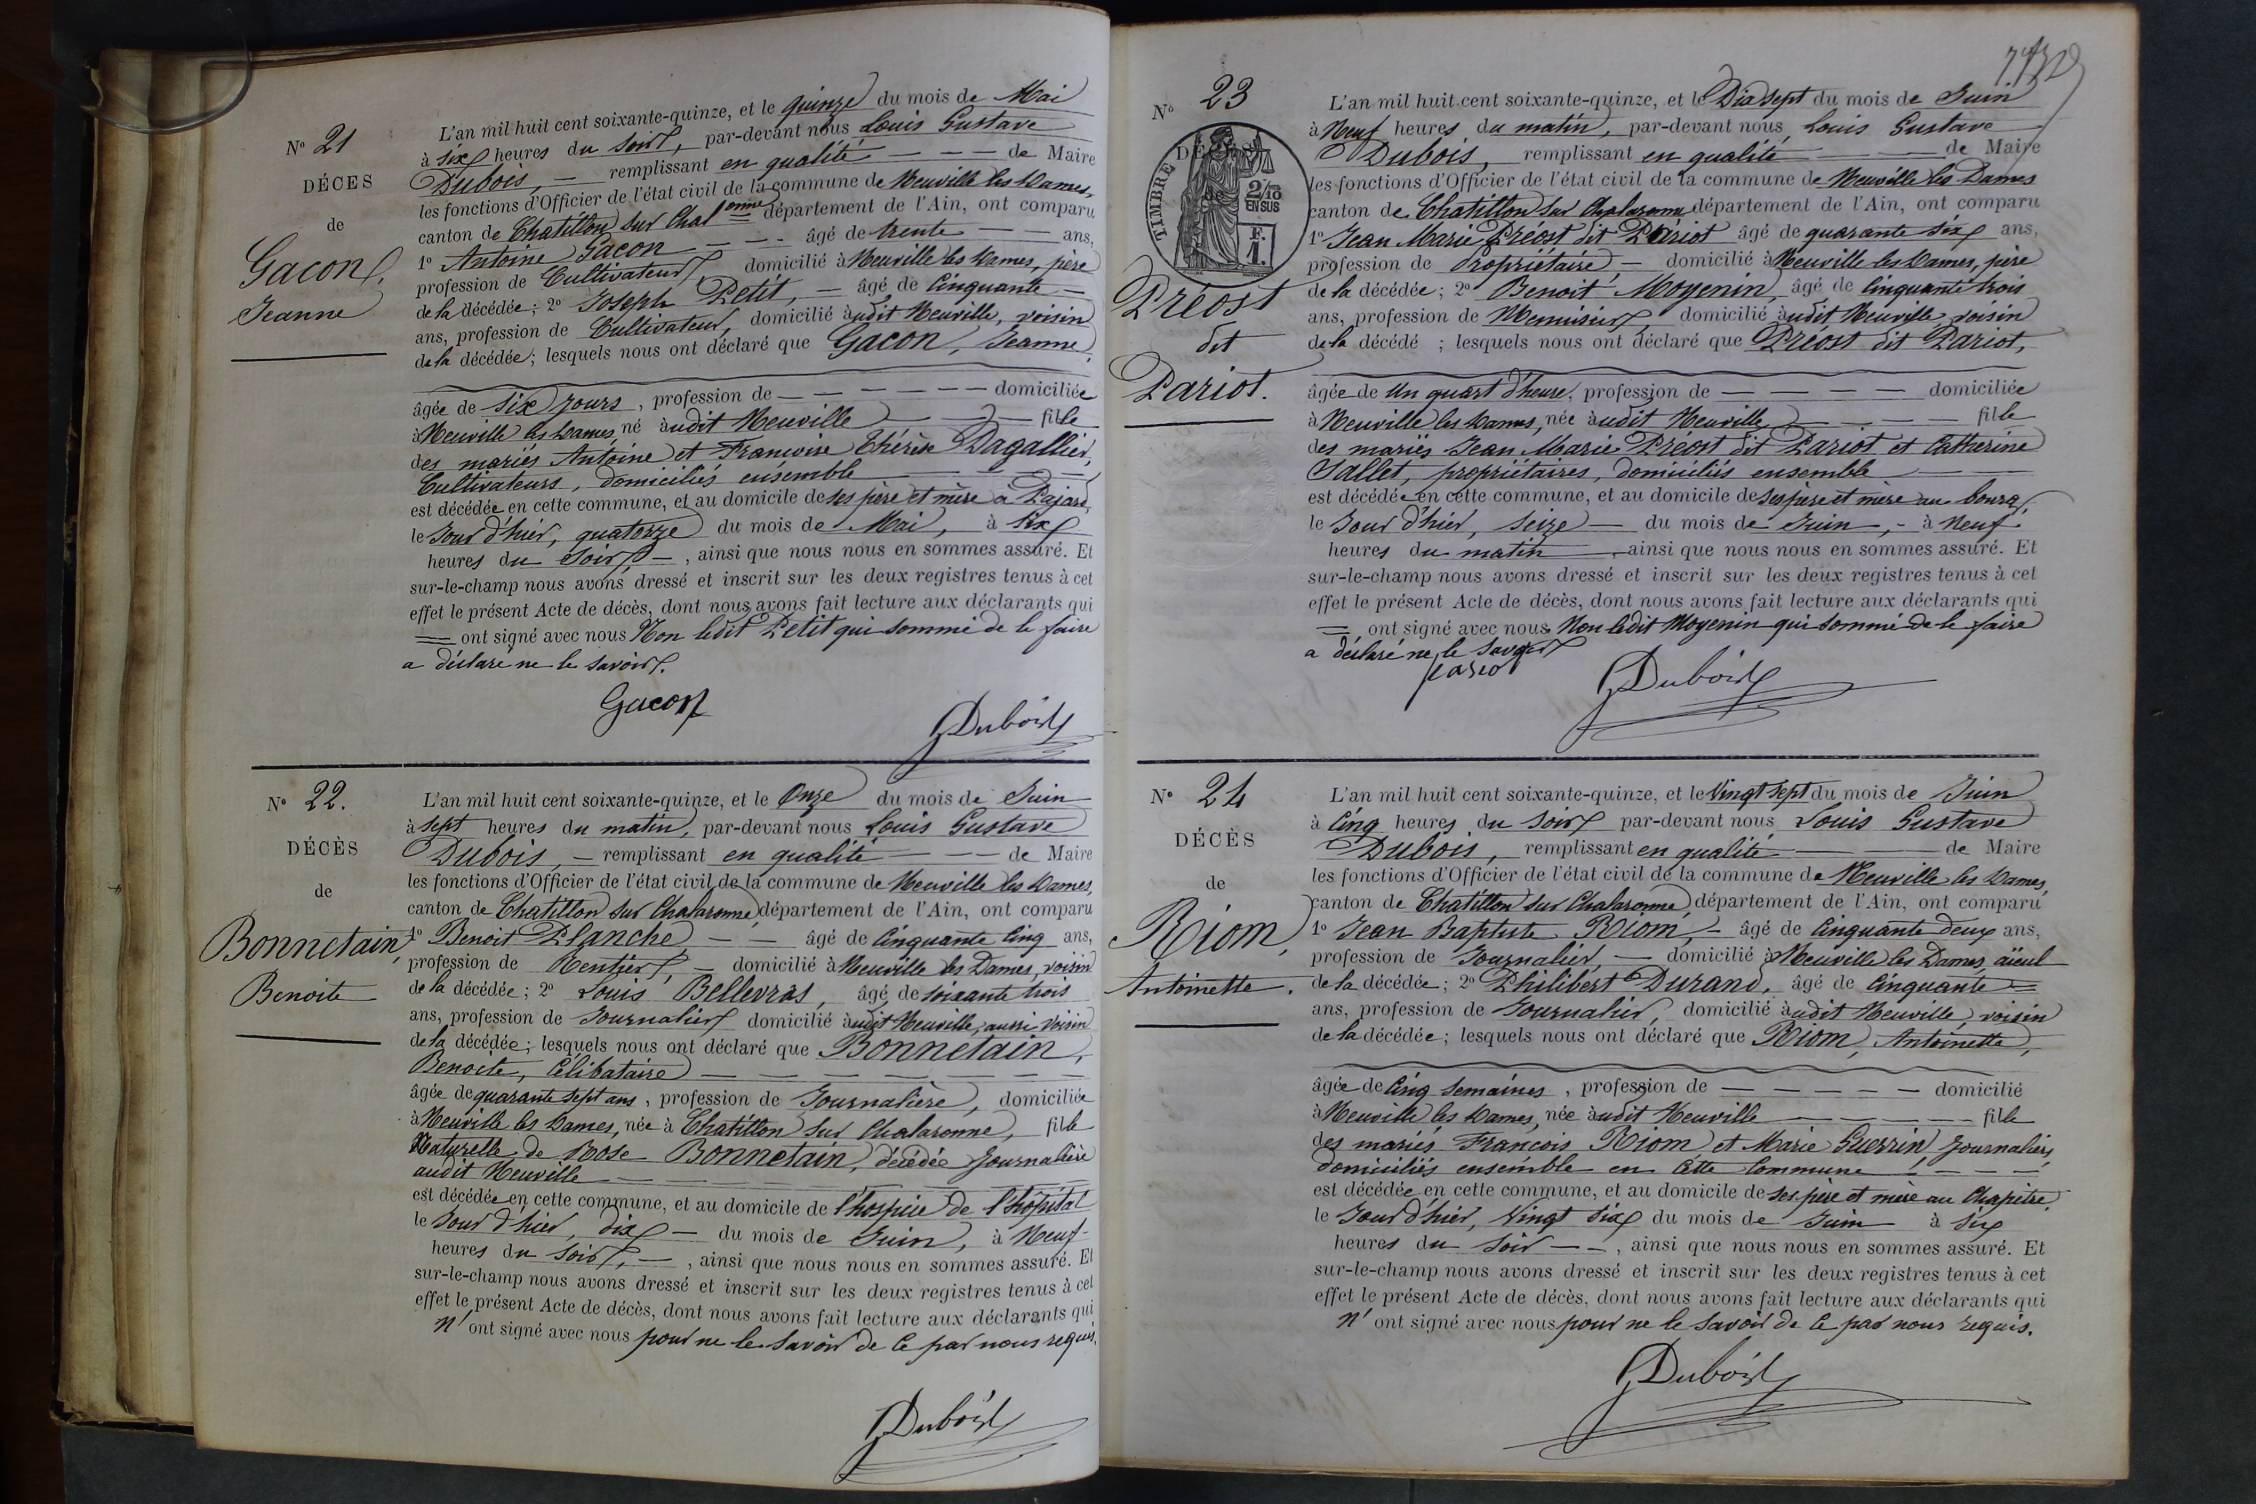 Nº 21
DÉCES
de
Gacon,
Jeanne
L'an mil huit cent soixante-quinze, et le quinze du mois de Mai
à six heures du soir, par-devant nous Louis Gustave
Dubois, — remplissant en qualité — — — de Maire
les fonctions d'Officier de l'état civil de la commune de Neuville les Dames,
canton de Chatillon sur Chalaronne département de l'Ain, ont comparu
1º Antoine Gacon — — - âgé de trente — — ans,
profession de Cultivateur, domicilié à Neuville les Dames, père
de la décédée; 2º Joseph Petit, — âgé de Cinquante —
ans, profession de Cultivateur, domicilié audit Neuville, voisin
de la décédée; lesquels nous ont déclaré que Gacon, Jeanne,
âgée de six jours, profession de — — — — — domiciliée
à Neuville les Dames, né audit Neuville — — fille
des mariés Antoine et Francoise Thérèse Dagallier,
Cultivateurs, domiciliés ensemble — — — —
est décédée en cette commune, et au domicile de ses père et mère à Pajard,
le Jour d'hier, quatorze du mois de Mai, à six
heures du Soir, —, ainsi que nous nous en sommes assuré. Et
sur-le-champ nous avons dressé et inscrit sur les deux registres tenus à cet
effet le présent Acte de décès, dont nous avons fait lecture aux déclarants qui
= ont signé avec nous Non ledit Petit qui sommé de le faire
a déclaré ne le savoir.
Gacon
Dubois
Nº 22.
DÉCÈS
de
Bonnetain,
Benoite
L'an mil huit cent soixante-quinze, et le Onze du mois de Juin
à sept heures du matin, par-devant nous Louis Gustave
Dubois, — remplissant en qualité — — — de Maire
les fonctions d'Officier de l'état civil de la commune de Neuville les Dames,
canton de Chatillon sur Chalaronne, département de l'Ain, ont comparu
1º Benoit Planche, — — âgé de Cinquante Cinq ans,
profession de Rentier, — domicilié à Neuville les Dames, voisin
de la décédée; 2º Louis Bellevras, âgé de soixante trois
ans, profession de Journalier domicilié audit Neuville, aussi Voisin
de la décédée; lesquels nous ont déclaré que Bonnetain,
Benoite, Célibataire — — — — — — —
âgée de quarante sept ans, profession de Journalière, domiciliée
à Neuville les Dames, née à Chatillon sur Chalaronne, fille
Naturelle de Rose Bonnetain, décédée Journalière
audit Neuville — — — — — —
est décédée en cette commune, et au domicile de l'hospice de l'hôpital
le Jour d'hier, dix — du mois de Juin, à Neuf
heures du Soir, —, ainsi que nous nous en sommes assuré. Et
sur-le-champ nous avons dressé et inscrit sur les deux registres tenus à cet
effet le présent Acte de décès, dont nous avons fait lecture aux déclarants qui
n'ont signé avec nous pour ne le savoir de ce par nous requis.
Dubois
Nº 23
DÉ
TIMBRE
2/10
EN SUS
F.
1.
Préost
dit
Pariot.
L'an mil huit cent soixante-quinze, et le Dix sept du mois de Juin
à Neuf heures du matin, par-devant nous, Louis Gustave
Dubois, remplissant en qualité — — de Maire
les fonctions d'Officier de l'état civil de la commune de Neuville les Dames
canton de Chatillon sur Chalaronne département de l'Ain, ont comparu
1º Jean Marie Préost dit Pariot âgé de quarante six ans,
profession de Propriétaire, — domicilié à Neuville les Dames, père
de la décédée; 2º Benoit Moyenin, âgé de Cinquante trois
ans, profession de Menuisier, domicilié audit Neuville, voisin
de la décédé ; lesquels nous ont déclaré que Préost dit Pariot,
âgée de Un quart d'heure, profession de — — — — — domiciliée
à Neuville les Dames, née audit Neuville — — — fille
des mariés Jean Marie Préost dit Pariot et Catherine
Sallet, propriétaires, domiciliés ensemble — —
est décédée en cette commune, et au domicile de ses père et mère au bourg,
le Jour d'hier, seize — du mois de Juin, - à Neuf
heures du matin —, ainsi que nous nous en sommes assuré. Et
sur-le-champ nous avons dressé et inscrit sur les deux registres tenus à cet
effet le présent Acte de décès, dont nous avons fait lecture aux déclarants qui
= ont signé avec nous Non ledit Moyenin qui sommé de le faire
a déclaré ne le savoir
pariot
Dubois
Nº 24
DÉCÈS
de
Riom,
Antoinette.
L'an mil huit cent soixante-quinze, et le Vingt sept du mois de Juin
à Cinq heures du soir par-devant nous, Louis Gustave
Dubois, remplissant en qualité — — de Maire
les fonctions d'Officier de l'état civil de la commune de Neuville les Dames,
canton de Chatillon sur Chalaronne, département de l'Ain, ont comparu
1º Jean Baptiste Riom, — âgé de Cinquante deux ans,
profession de Journalier, — domicilié à Neuville les Dames, aïeul
de la décédée; 2º Philibert Durand, âgé de Cinquante =
ans, profession de Journalier, domicilié audit Neuville, voisin
de la décédée; lesquels nous ont déclaré que Riom, Antoinette,
âgée de Cinq semaines, profession de — — — — — domicilié
à Neuville les Dames, née audit Neuville — — — — fille
des mariés François Riom et Marie Guerrin, Journaliers,
domiciliés ensemble en Cette Commune — — — —
est décédée en cette commune, et au domicile de ses père et mère au Chapitre,
le Jour d'hier, Vingt six du mois de Juin à six
heures du Soir — -, ainsi que nous nous en sommes assuré. Et
sur-le-champ nous avons dressé et inscrit sur les deux registres tenus à cet
effet le présent Acte de décès, dont nous avons fait lecture aux déclarants qui
n'ont signé avec nous pour ne le savoir de ce par nous requis.
Dubois